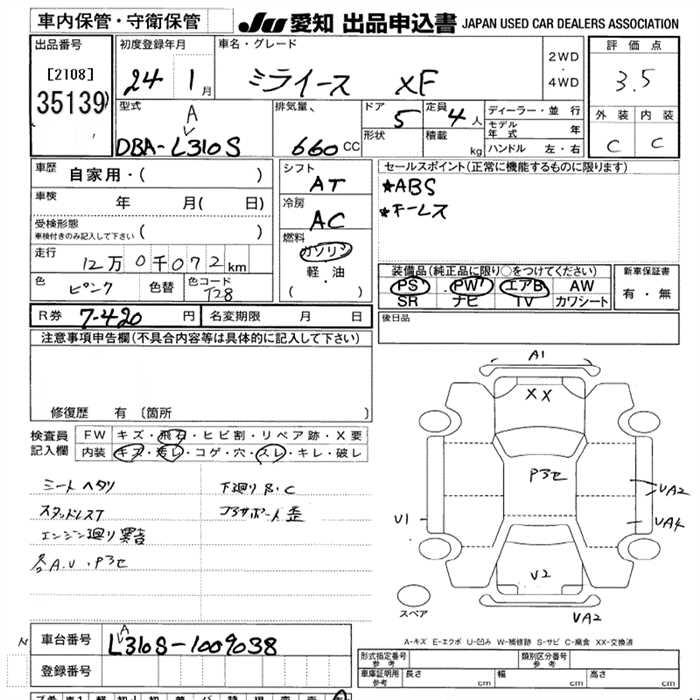 車内保管・守衛保管
JU 愛知 出品申込書 JAPAN USED CAR DEALERS ASSOCIATION
出品番号
[2108]
35139
初度登録年月
24 1月
車名・グレード
ミライース XF
2WD
・
4WD
評価点
3.5
外装 内装
C C
型式
DBA-LA310S
排気量、
660cc
ドア 5
形状
定員 4人
積載 kg
ディーラー・並行
モデル年式 年
ハンドル 左・右
車歴
自家用・( )
車検
年 月( 日)
受検形態
車検付きのみ記入して下さい ( )
走行
12万0千072km
色 ピンク 色替 色コード T28
シフト
AT
冷房
AC
燃料
ガソリン
軽・油
( )
セールスポイント(正常に機能するものに限ります)
★ABS
★キーレス
装備品(純正品に限り○をつけてください)
PS PW エアB AW
SR ナビ TV カワシート
新車保証書
有・無
R券 7-420円 名変期限 月 日
後日品
注意事項申告欄(不具合内容等は具体的に記入して下さい)
修復歴 有 〔箇所 〕
検査員記入欄
FW キズ・飛石・ヒビ割・リペア跡・X要
内装 キズ・汚レ・コゲ・穴・スレ・キレ・破レ
シートヘタリ
スタッドレス7
エンジン廻り異音
各A.U・Pヨセ
下廻りS・C
コアサポート歪
A1
XX
Pヨセ
UA2
U1
UA4
U2
UA2
スペア
A-キズ E-エクボ U-凹み W-補修跡 S-サビ C-腐食 XX-交換済
車台番号 LA310S-1009038
登録番号
型式指定番号
参考
類別区分番号
参考
車庫証明用
参考
長さ cm 幅 cm 高さ cm